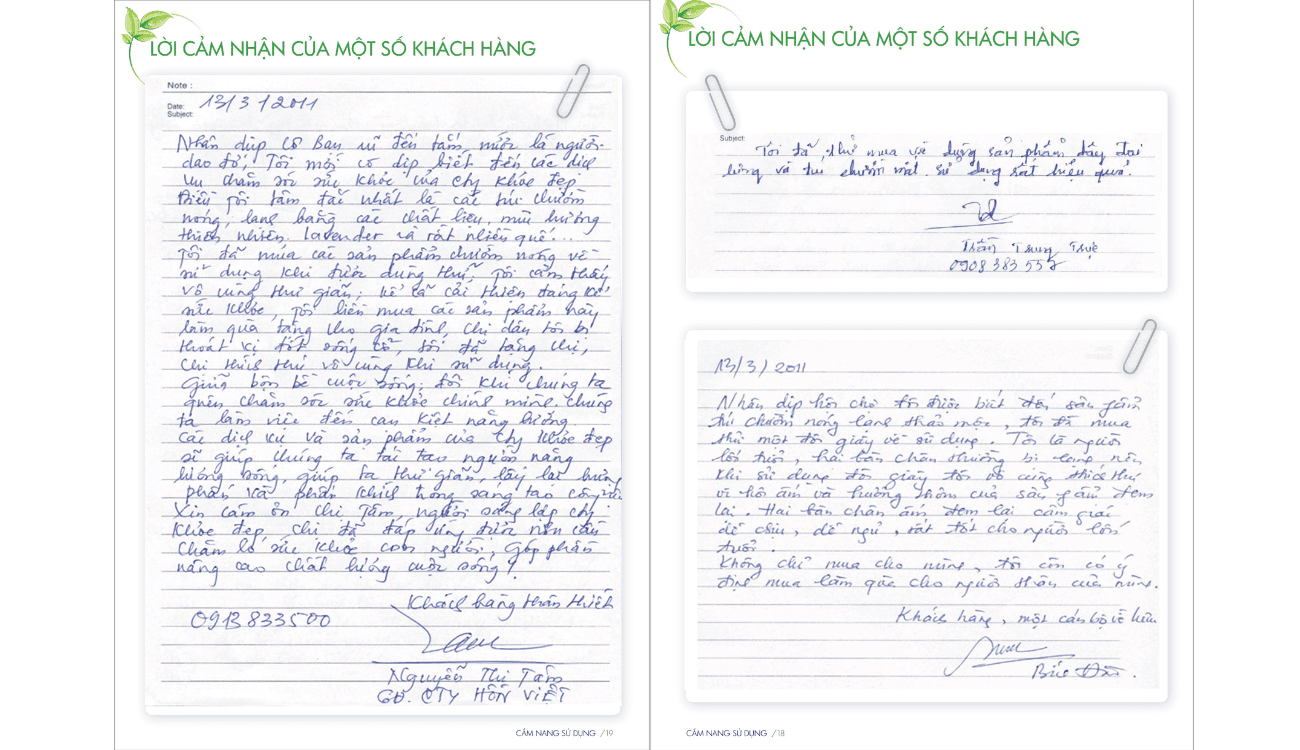 LỜI CẢM NHẬN CỦA MỘT SỐ KHÁCH HÀNG
Note :
Date: 13/3/2011
Subject:
Nhân dịp cô bạn rủ đến tắm, mước lá người
dao đỏ, Tôi mới có dịp biết đến các dịch
vụ chăm sóc sức khỏe của Cty Khỏe Đẹp
Điều tôi tâm đắc nhất là các túi chườm
nóng, lạnh bằng các chất liệu, mùi hương
thiên nhiên. lavender và rất nhiều quế...
Tôi đã mua các sản phẩm chườm nóng về
sử dụng khi được dùng thử, Tôi cảm thấy
vô cùng thư giãn, kể cả cải thiện đáng kể
sức khỏe, Tôi liền mua các sản phẩm này
làm quà tặng cho gia đình, chị dâu tôi bị
thoát vị đốt sống cổ, tôi đã tặng chị,
chị thích thú vô cùng khi sử dụng.
Giữa bộn bề cuộc sống, đôi khi chúng ta
quên chăm sóc sức khỏe chính mình. chúng
ta làm việc đến cạn kiệt năng lượng.
Các dịch vụ và sản phẩm của Cty Khỏe đẹp
sẽ giúp chúng ta tái tạo nguồn năng
lượng sống, giúp ta thư giãn, lấy lại hưng
phấn và phấn khích trong sáng tạo công việc
Xin cám ơn chị Tâm, người sáng lập cty
Khỏe đẹp, chị đã đáp ứng được nhu cầu
chăm lo sức khỏe con người, góp phần
nâng cao chất lượng cuộc sống!
Khách hàng thân thiết
0913833500
Nguyễn Thị Tám
GĐ. CTY HỒN VIỆT
CẨM NANG SỬ DỤNG /19
LỜI CẢM NHẬN CỦA MỘT SỐ KHÁCH HÀNG
Subject:
Tôi đã thử mua về dụng sản phẩm dây đai
lưng và túi chườm mắt. sử dụng rất hiệu quả.
Trần Trung Trực
0908 383 552
13/3/2011
Nhân dịp hội chợ tôi được biết đến sản phẩm
túi chườm nóng lạnh thảo mộc, tôi đã mua
thử một đôi giày về sử dụng. Tôi là người
lớn tuổi, hai bàn chân thường bị lạnh nên
khi sử dụng đôi giày tôi vô cùng thích thú
vì hơi ấm và hương thơm của sản phẩm đem
lại. Hai bàn chân ấm đem lại cảm giác
dễ chịu, dễ ngủ, rất tốt cho người lớn
tuổi.
Không chỉ mua cho mình, tôi còn có ý
định mua làm quà cho người thân của mình.
Khách hàng, một cán bộ về hưu
CẨM NANG SỬ DỤNG /18